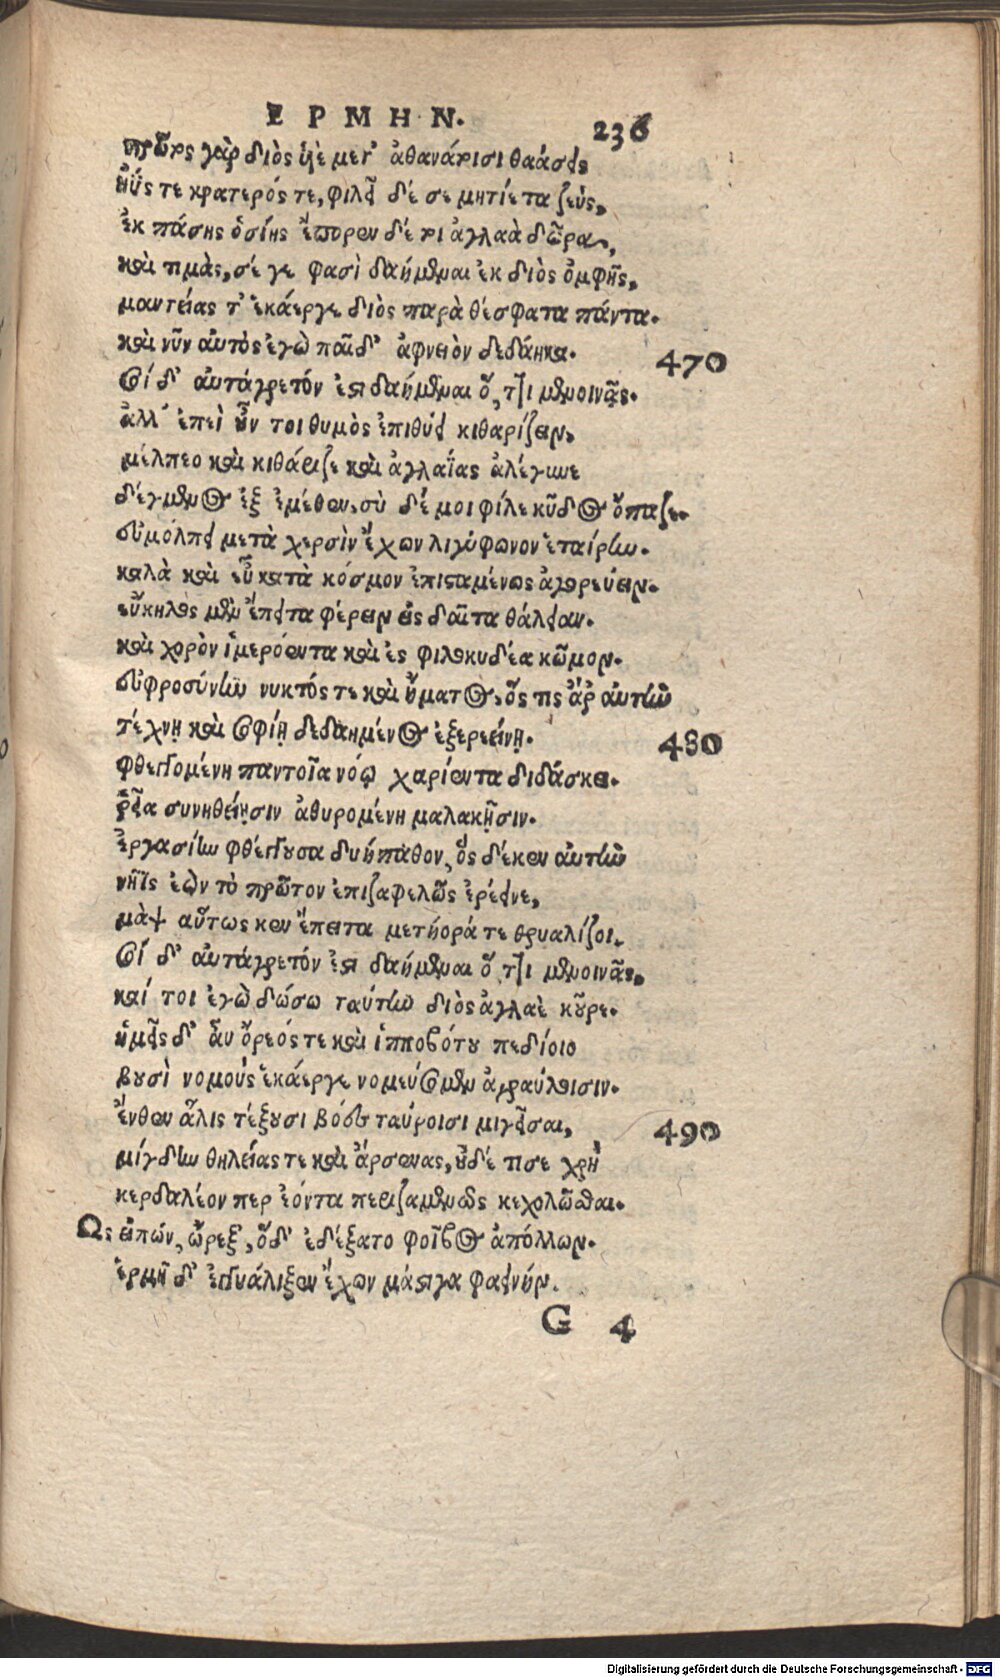 ΕΡΜΗΝ.
236
πρῶτος γὰρ διὸς ὑὲ μετ' ἀθανάτοισι θαάσεις
ἠΰς τε κρατερός τε, φιλεῖ δέ σε μητίετα ζεὺς,
ἐκ πάσης ὁσίης ἔπορεν δέ τοι ἀγλαὰ δῶρα,
καὶ τιμὰς, σέ γε φασὶ δαήμεναι ἐκ διὸς ὀμφῆς,
μαντείας τ' ἑκάεργε διὸς παρὰ θέσφατα πάντα.
καὶ νῦν αὐτὸς ἐγὼ παῖδ' ἀφνειὸν δεδάηκα.
470
σοί δ' αὐτάγρετόν ἐστι δαήμεναι ὅ, ττι μενοινᾷς.
ἀλλ' ἐπεὶ οὖν τοι θυμὸς ἐπιθύει κιθαρίζειν,
μέλπεο καὶ κιθάριζε καὶ ἀγλαΐας ἀλέγυνε
δέγμενος ἐξ ἐμέθεν, σὺ δέ μοι φίλε κῦδος ὄπαζε.
εὐμόλπει μετὰ χερσὶν ἔχων λιγύφωνον ἑταίρην.
καλὰ καὶ εὖ κατὰ κόσμον ἐπισταμένως ἀγορεύειν.
εὔκηλος μὲν ἔπειτα φέρειν εἰς δαῖτα θάλειαν.
καὶ χορὸν ἱμερόεντα καὶ ἐς φιλοκυδέα κῶμον.
εὐφροσύνην νυκτός τε καὶ ἤματος, ὅς τις ἂρ αὐτὴν
τέχνῃ καὶ σοφίῃ δεδαημένος ἐξερεείνῃ.
480
φθεγγομένη παντοῖα νόῳ χαρίεντα διδάσκει.
ῥεῖα συνηθείῃσιν ἀθυρομένη μαλακῇσιν.
ἐργασίην φθέγγουσα δυήπαθον, ὃς δέ κεν αὐτὴν
νῆϊς ἐὼν τὸ πρῶτον ἐπιζαφελῶς ἐρέεινε,
μὰψ αὔτως κεν ἔπειτα μετήορά τε θρυαλίζοι.
σοί δ' αὐτάγρετόν ἐστι δαήμεναι ὅ, ττι μενοινᾷς,
καί τοι ἐγὼ δώσω ταύτην διὸς ἀγλαὲ κοῦρε.
ἡμεῖς δ' αὖ ὄρεός τε καὶ ἱπποβότου πεδίοιο
βουσὶ νομοὺς ἑκάεργε νομεύσομεν ἀγραύλοισιν.
ἔνθεν ἅλις τέξουσι βόες ταύροισι μιγεῖσαι,
490
μίγδην θηλείας τε καὶ ἄρσενας, οὐδέ τί σε χρὴ
κερδαλέον περ ἐόντα περιζαμενῶς κεχολῶσθαι.
Ως εἰπών, ὤρεξ', ὃ δ' ἐδέξατο φοῖβος ἀπόλλων.
ἑρμῇ δ' ἐγγυάλιξεν ἔχων μάστιγα φαεινήν.
G 4
Digitalisierung gefördert durch die Deutsche Forschungsgemeinschaft - DFG